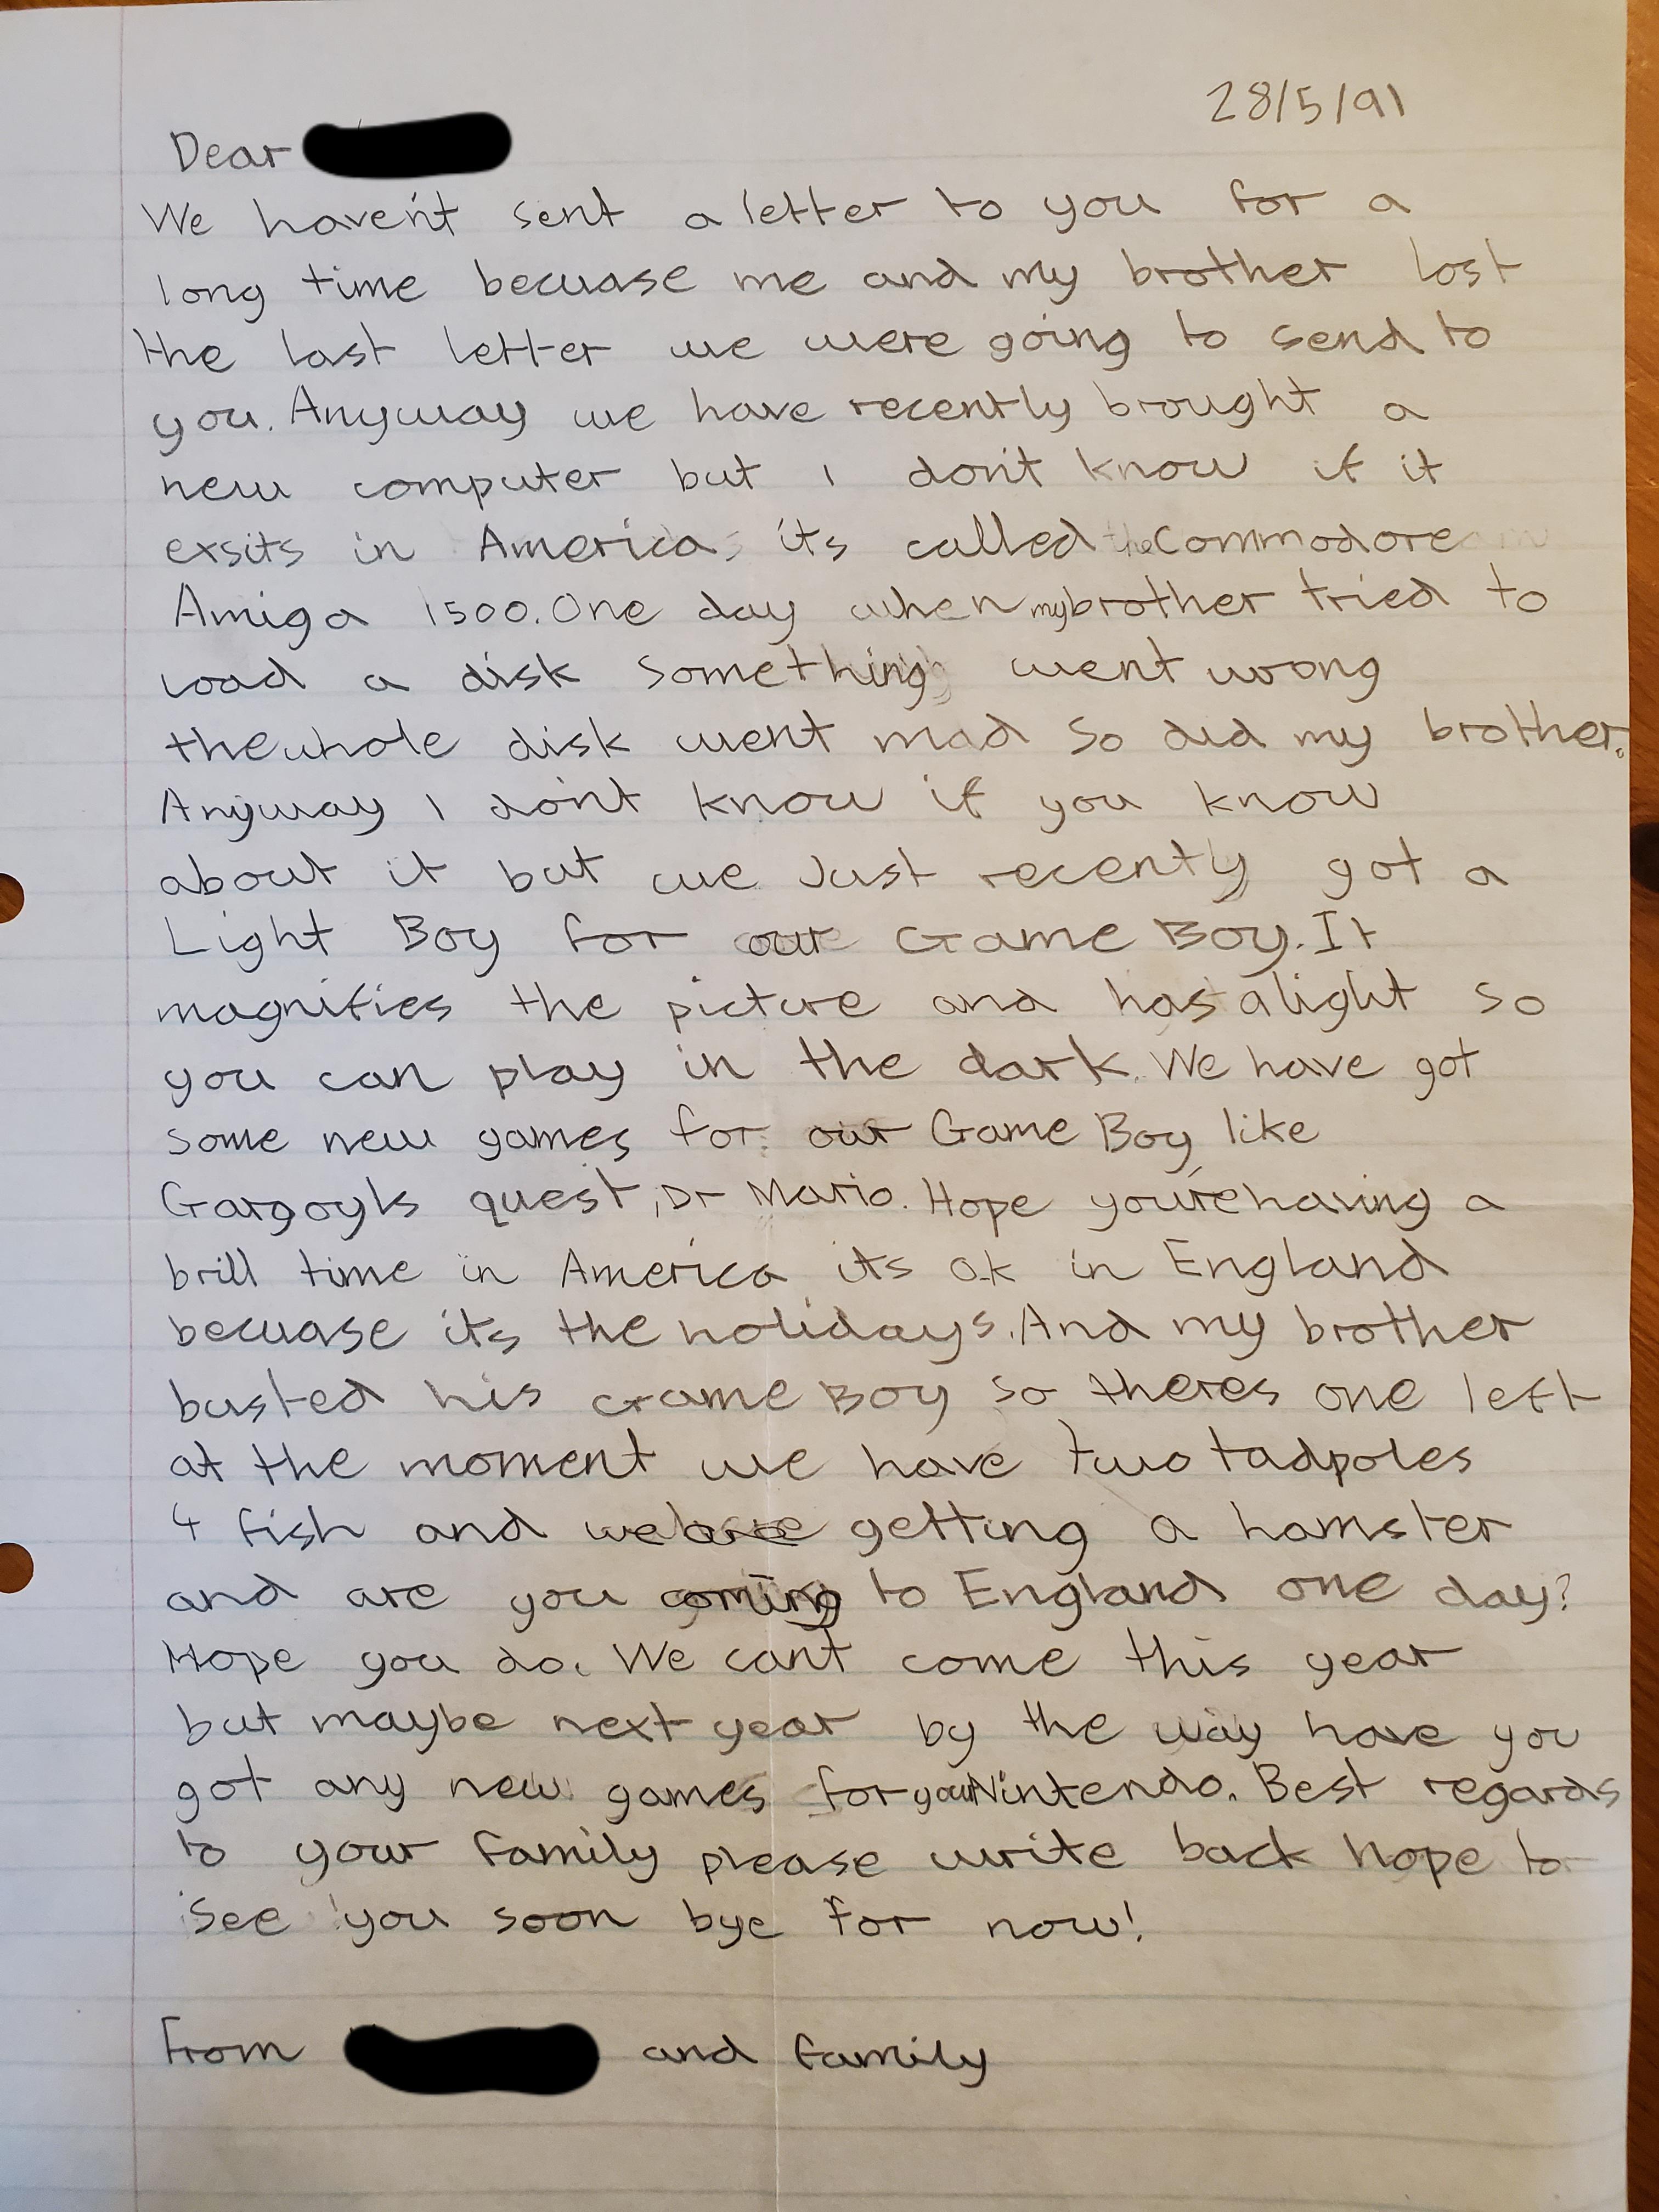 28/5/91
Dear
We haven't sent a letter to you for a
long time becuase me and my brother lost
the last letter we were going to send to
you. Anyway we have recently brought a
new computer but I don't know if it
exsits in America, its called the Commodore
Amiga 1500. One day when my brother tried to
load a disk something went wrong
the whole disk went mad so did my brother.
Anyway I don't know if you know
about it but we Just recently got a
Light Boy for our Game Boy. It
magnifies the picture and has a light so
you can play in the dark. We have got
some new games for our Game Boy like
Gargoyls quest, Dr Mario. Hope you're having a
brill time in America its O.k in England
becuase its the holidays. And my brother
busted his Game Boy so theres one left
at the moment we have two tadpoles
4 fish and we are getting a hamster
and are you coming to England one day?
Hope you do. We can't come this year
but maybe next year by the way have you
got any new games for your Nintendo. Best regards
to your family please write back hope to
see you soon bye for now!
From and family